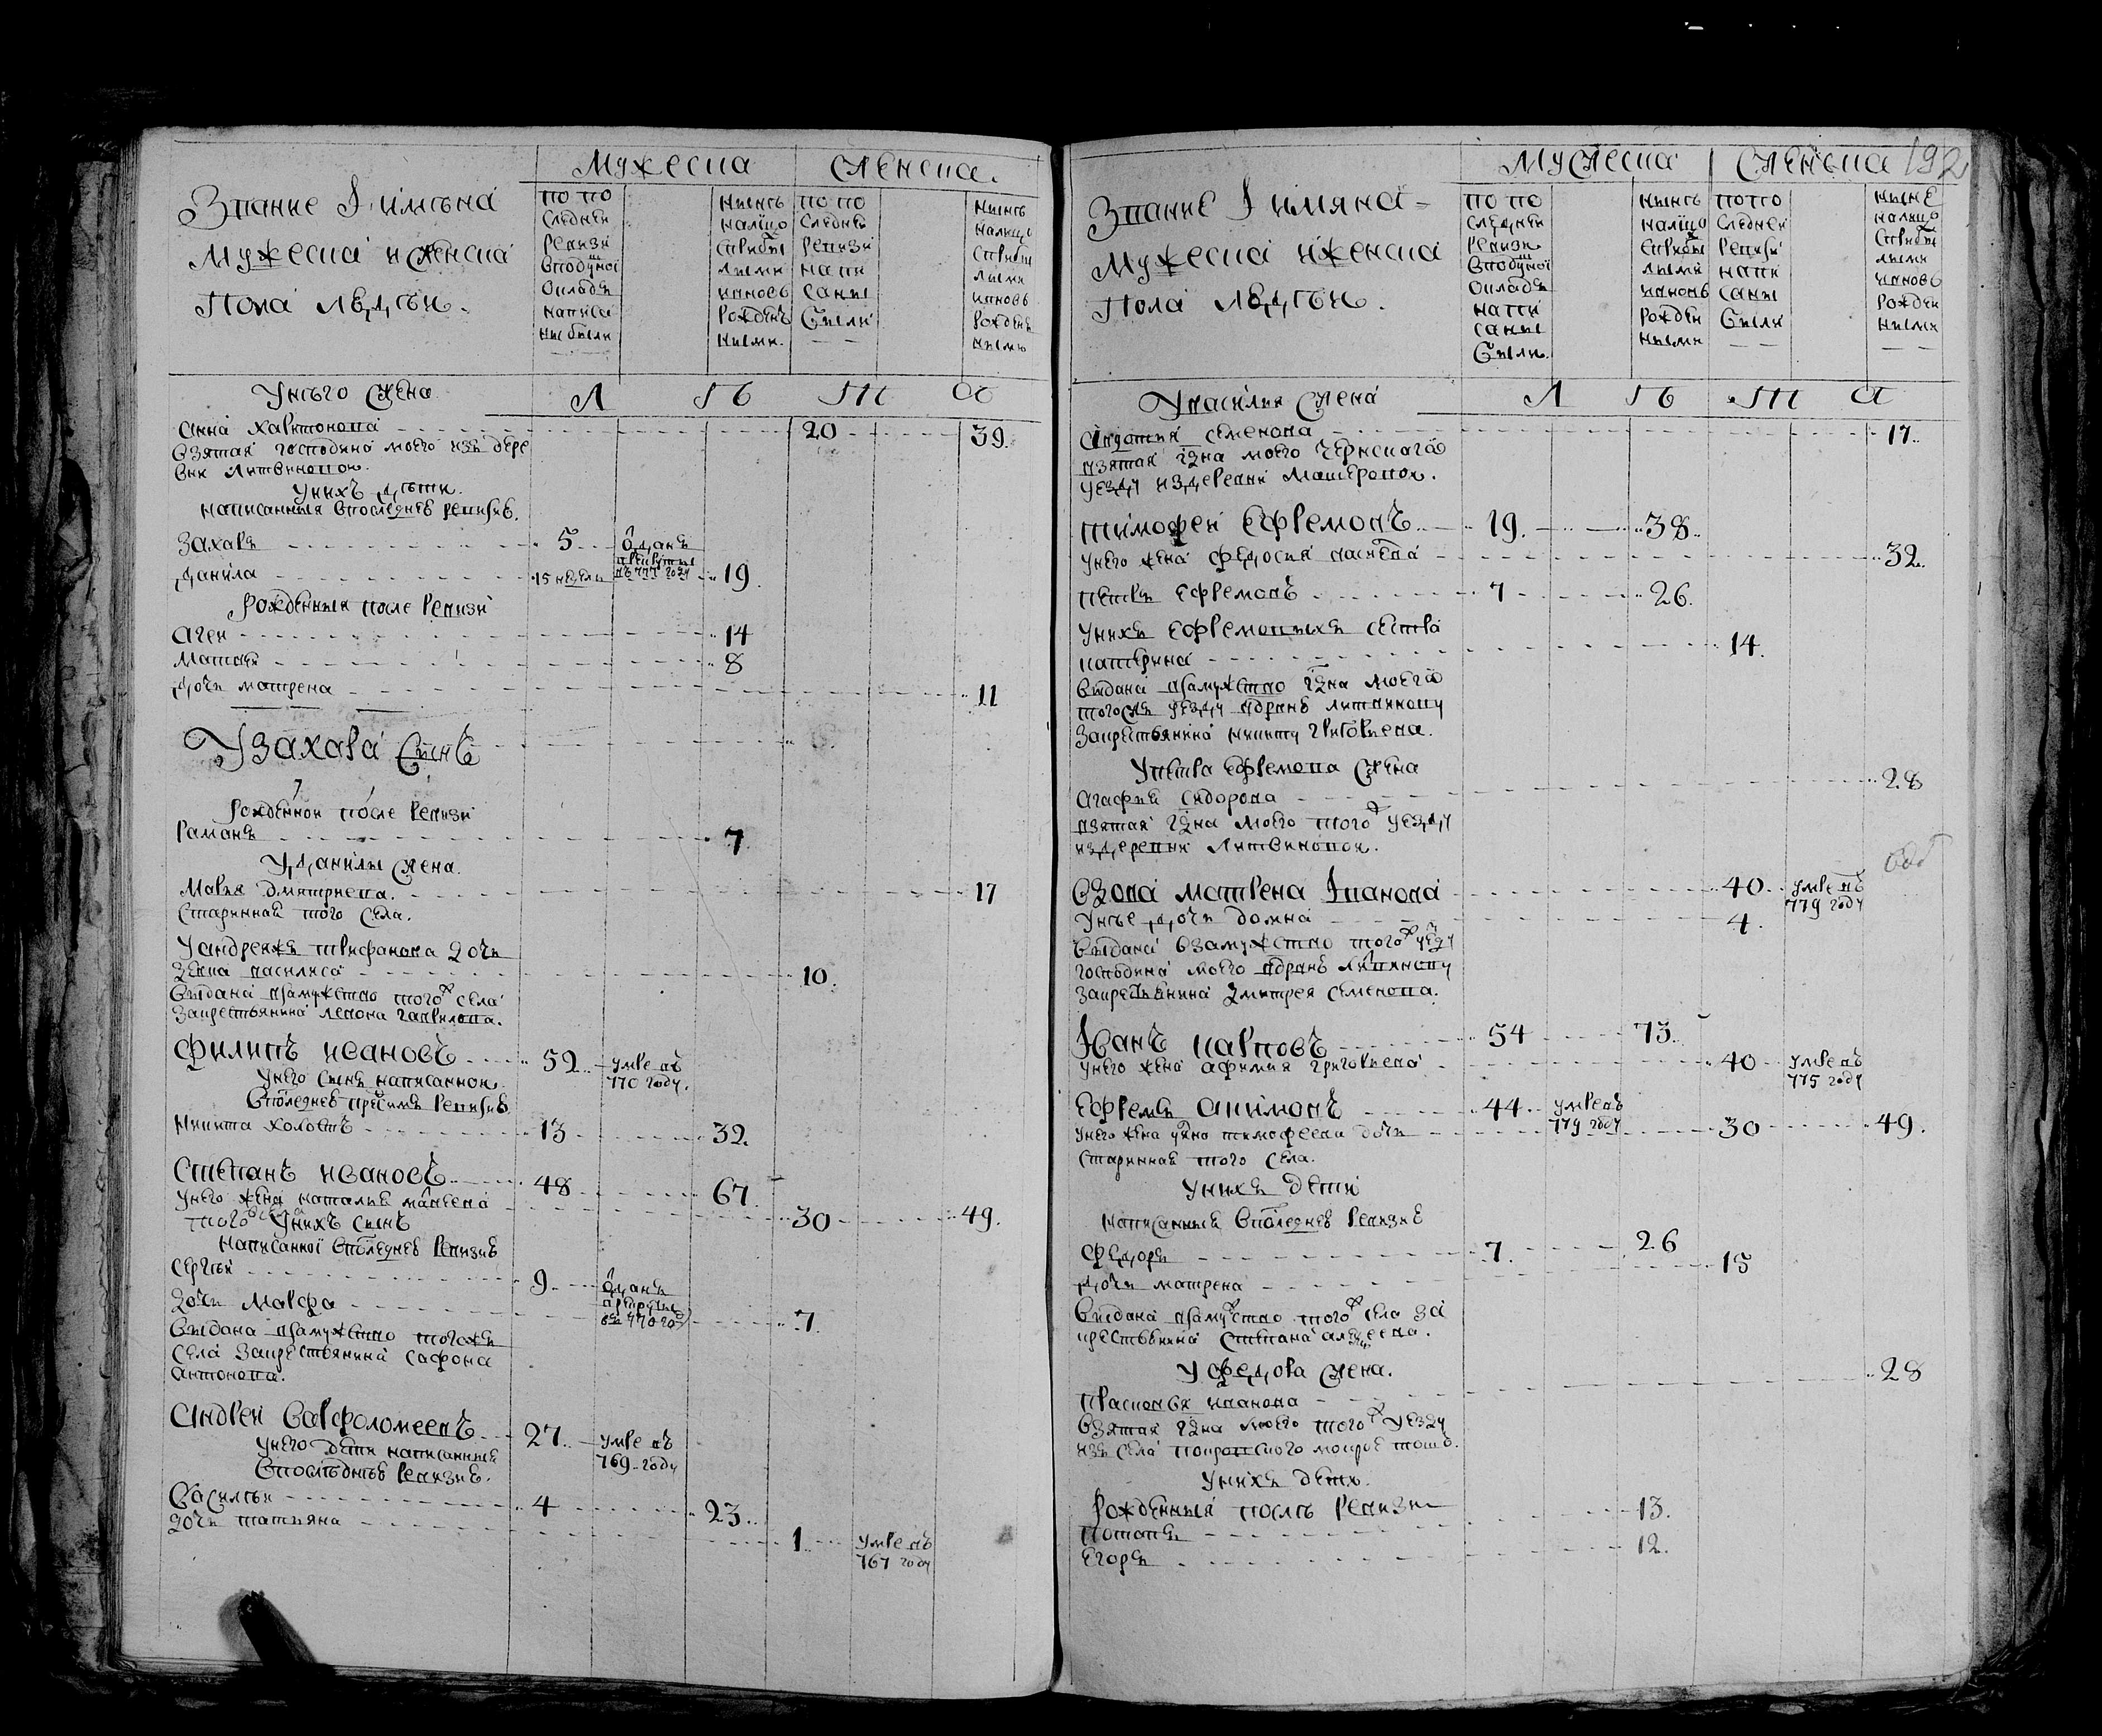 Звание Ӏ имѣна
Мужеска и женска
Пола лѣтъ и.
Мужеска
женска.
по по
следней
ревизи
в подушной
окладъ
написа
ны были
нынѣ
налицо
с прибы
лыми
и вновь
рожден
ными.
по по
следней
ревизи
напи
саны
были
нынѣ
налицо
с прибы
лыми
и вновь
рожден
ными
У него жена
Л П М А
Анна Харитонова 20 39.
взятая господина моего изъ дере
вни Литвиновой.
У нихъ дѣти
написанныя в последнеѣ ревизиѣ.
Захаръ 5 Отданъ
Данила 15 недель в рекруты въ 777 году 19
Рожденныя после ревизи
Агей 14
Матвѣй 8
Дочь матрена 11
У Захара сынъ
Рожденной после ревизи
Раманъ 7
У Данилы жена.
Марья Дмитриева. 17
Старинная того села.
У андрея трифанова дочь
девка василиса 10.
выдана в замужство того ж села
за крестьянина левона гаврилова.
Филипъ ивановъ 52. умре въ
770 году.
у него сынъ написанной
в последнеѣ ревизиѣ
Никита холостъ 13 32.
Степанъ ивановъ 48 67.
у него жена наталья 30 49.
того ж села У нихъ сынъ
написанной в последнеѣ ревизиѣ
Сергѣй 9 Отданъ
в рекруты
въ 770 году
дочь Марфа 7
выдана в замужство того жъ
села за крестьянина сафона
антонова.
Андрей варфоломеевъ 27. умре въ
769 году
у него дети написанные
в последнеѣ ревизиѣ.
Василѣй 4 23.
дочь татьяна 1 умре въ
767 году
192
Звание Ӏ имяна
Мужеска и женска
Пола лѣтъ и.
Мужеска
женска
по по
следней
ревизи
в подушной
окладъ
напи
саны
были.
нынѣ
налицо
с прибы
лыми
и вновь
рожден
ными
по по
следней
ревизи
напи
саны
были
ныне
налицо
с прибы
лыми
и вновь
рожден
ными
У василья жена
Л П М А
семенова 17.
взятая гдна моего чернскаго
уезду из деревни
Тимофей Ефремовъ 19. 38.
у него жена федосия 32.
Петръ Ефремовъ 7 26.
у нихъ Ефремовыхъ сестра
катерина 14.
выдана в замужство гдна моего
того жъ уезду в дрвнѣ литвинову
за крестьянина никиту григорьева.
У петра ефремова жена
Агафия сидорова 28
взятая гдна моего того ж уезду
из деревни литвиновой.
Вдова матрена Ӏванова 40. умре въ
779 году
у нее дочь домна 4.
выдана в замужство того ж уезду
господина моего в дрвнѣ литвинову
за крестьянина дмитрея семенова.
Ӏванъ карповъ 54 73.
у него жена афимия григорьева 40 умре въ
775 году
Ефремъ акимовъ 44. умре въ
779 году
у него жена тимофеева дочь 30 49.
Старинная того села.
У нихъ дети
написанныя в последнеѣ ревизиѣ
Федоръ 7. 26
дочь матрена 15
выдана в замужство того ж села за
крестьянина степана алексеева.
У федора жена.
Прасковья иванова 28
взятая гдна моего того ж уезду
изъ села покровского
У нихъ дети.
Рожденныя послѣ ревизи
Потапъ 13.
Егоръ 12.